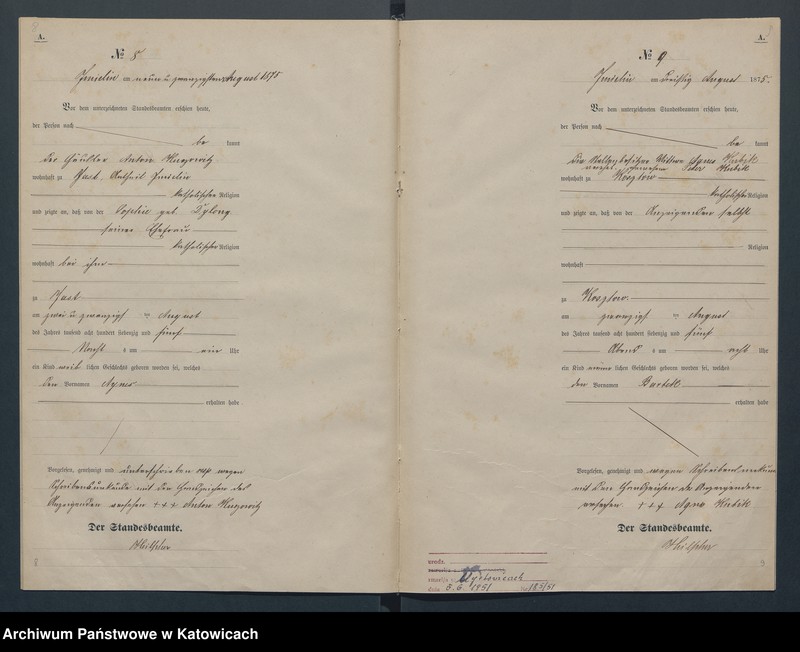 A.
№ 8
Imielin am neun u. zwanzigsten August 1875
Vor dem unterzeichneten Standesbeamten erschien heute,
der Person nach
be kannt
Der Häusler Anton
wohnhaft zu Antheil Imielin
katholischer Religion
und zeigte an, daß von der Sophie geb.
seiner Ehefrau
katholischer Religion
wohnhaft bei ihm
zu
am zwei u. zwanzigst en August
des Jahres tausend acht hundert siebenzig und fünf
Nacht s um ein Uhr
ein Kind weib lichen Geschlechts geboren worden sei, welches
den Vornamen Agnes
erhalten habe
Vorgelesen, genehmigt und unterschrieben wegen
Schreibensunkunde mit dem Handzeichen des
Anzeigenden versehen +++ Anton
Der Standesbeamte.
8
A.
№ 9
Imielin am dreißig August 1875.
Vor dem unterzeichneten Standesbeamten erschien heute,
der Person nach
be kannt
Die Wittwe Agnes Kubik
wohnhaft zu Kosztow
katholischer Religion
und zeigte an, daß von der Anzeigenden selbst
Religion
wohnhaft
zu Kosztow
am zwanzigst en August
des Jahres tausend acht hundert siebenzig und fünf
Abend s um acht Uhr
ein Kind männ lichen Geschlechts geboren worden sei, welches
den Vornamen Bartek
erhalten habe
Vorgelesen, genehmigt und wegen Schreibensunkunde
mit dem Handzeichen der Anzeigenden
versehen +++ Agnes Kubik
Der Standesbeamte.
9
8.6.1951 185/51
Archiwum Państwowe w Katowicach